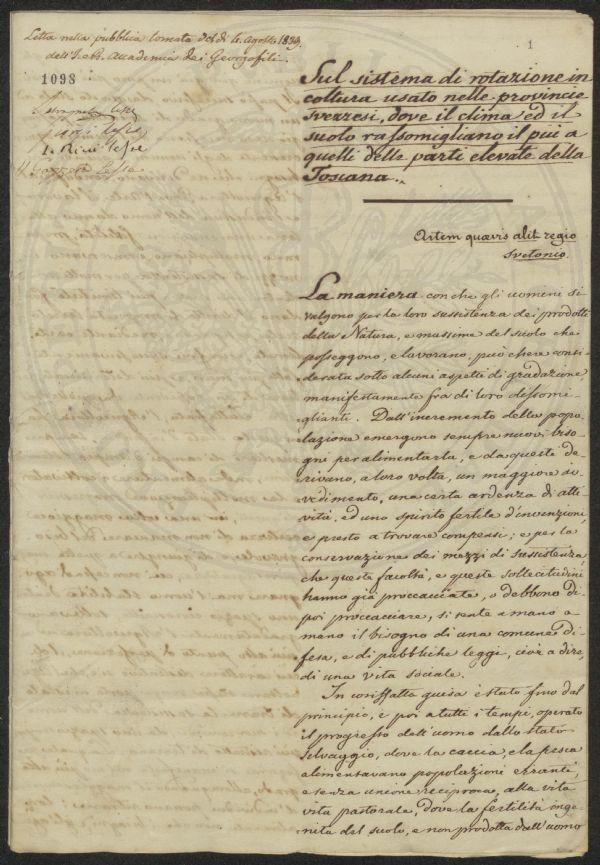 Letta nella pubblica tornata del dì 4. Agosto 1839.
dell'I. e R. Accademia dei Georgofili.
1098
1
Sul sistema di rotazione in
coltura usato nelle provincie
Svezzesi, dove il clima ed il
suolo rassomigliano il più a
quelli delle parti elevate della
Toscana.
Lesse
L. Ridi Lesse
Lesse
Artem quævis alit regio
Svetonio.
La maniera con che gli uomini si
valgono per la loro sussistenza dei prodotti
della Natura, e massime del suolo che
posseggono, e lavorano, può essere consi-
derata sotto alcuni aspetti di gradazione
manifestamente fra di loro dissomi-
glianti. Dall'incremento della popo-
lazione emergono sempre nuovi biso-
gni per alimentarla, e da questi de-
rivano, a loro volta, un maggiore av-
vedimento, una certa ardenza di atti-
vità, ed uno spirito fertile d'invenzioni,
e presto a trovare compensi; e per la
conservazione dei mezzi di sussistenza,
che questa facoltà, e queste sollecitudini
hanno già proccacciate, o debbono di
poi proccacciare, si sente a mano a
mano il bisogno di una comune di-
fesa, e di pubbliche leggi, cioè a dire,
di una vita sociale.
In cosiffatta guisa è stato fino dal
principio, e poi a tutti i tempi, operato
il progresso dell'uomo dallo stato
selvaggio, dove la caccia, e la pesca
alimentavano popolazioni erranti,
e senza unione reciproca, alla vita
vita pastorale, dove la fertilità inge-
nita del suolo, e non prodotta dall'uomo